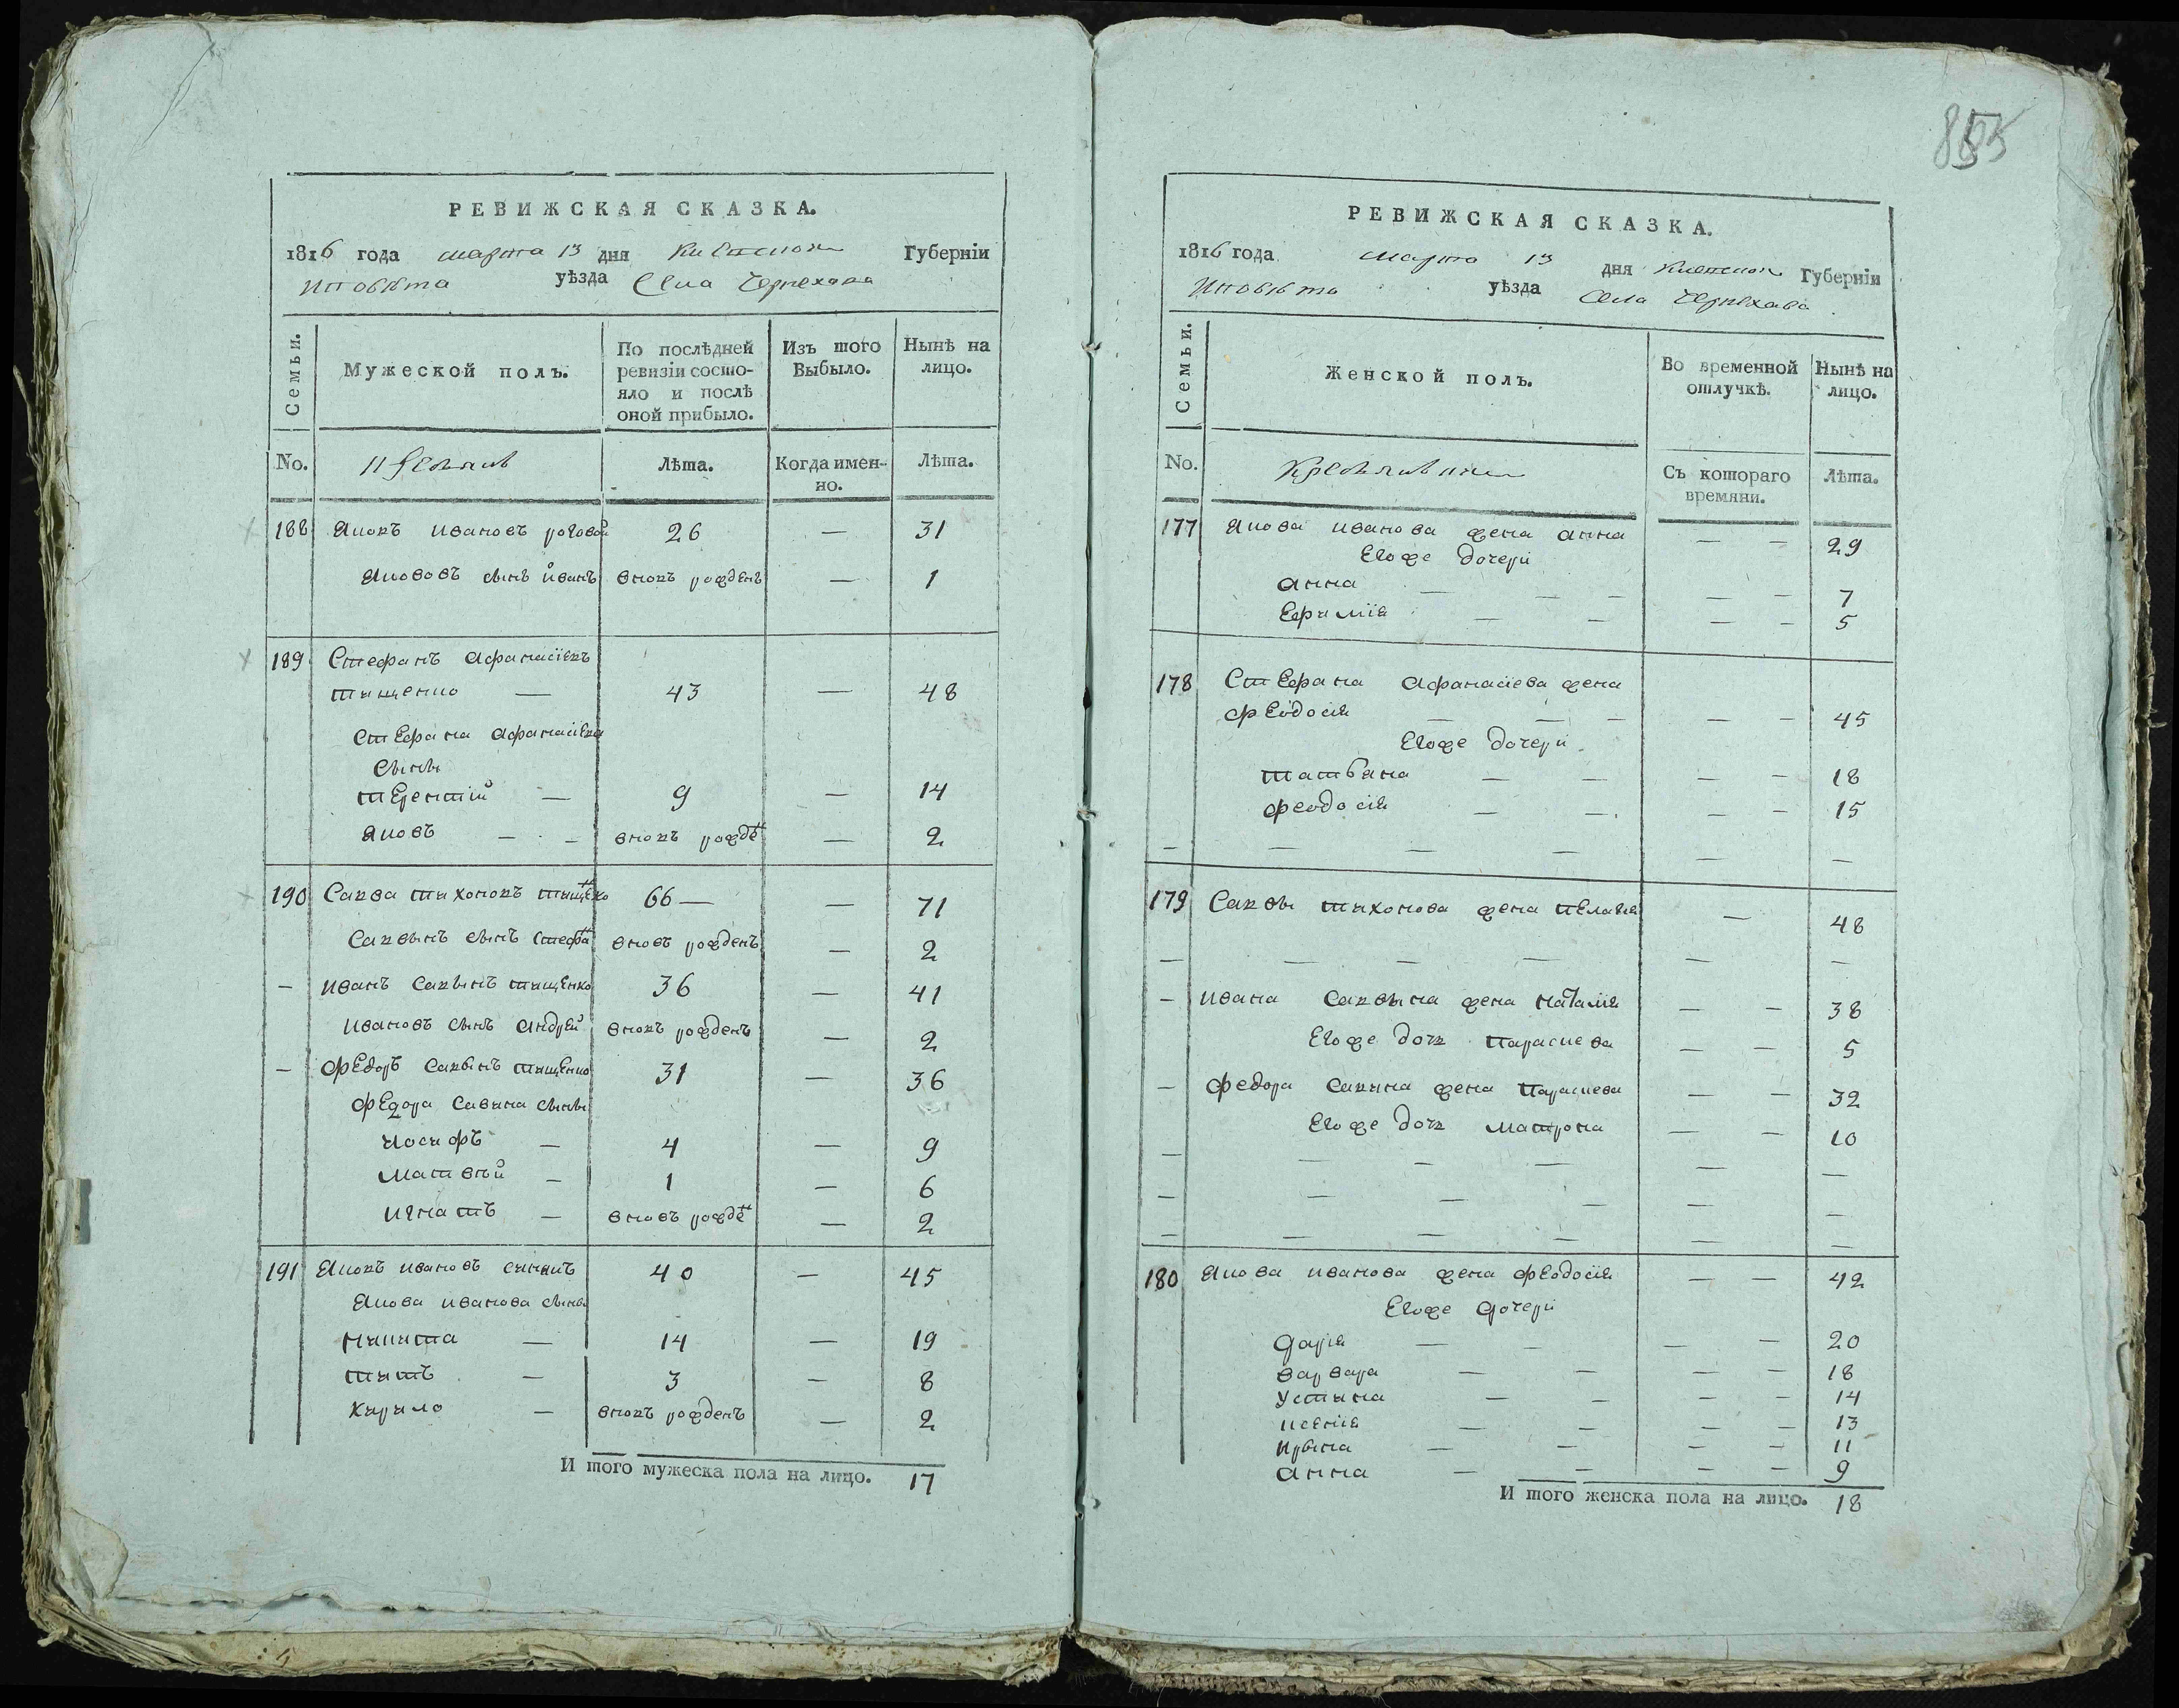 855
РЕВИЖСКАЯ СКАЗКА.
1816 года марта 13 дня Киевской Губерніи
Иповѣта уѣзда Села Чернехова
Семьи. Мужеской полъ. По послѣдней ревизіи состояло и послѣ оной прибыло. Изъ того Выбыло. Нынѣ на лицо.
No. Лѣта. Когда именно. Лѣта.
188 Яковъ Ивановъ роговой 26 — 31
Якововъ сынъ Иванъ вновь рожденъ — 1
189 Стефанъ Афанасіевъ
тищенко — 43 — 48
Стефана Афанасіева
сыны
терентій — 9 — 14
Яковъ — — вновь рожде — 2
190 Савва тихоновъ тищеко 66 — — 71
Саввинъ сынъ Стефа вновь рожденъ — 2
— Иванъ Саввинъ тищенко 36 — 41
Ивановъ сынъ Андрей вновь рожденъ — 2
— Федоръ Саввинъ тищенко 31 — 36
Федора Савина сыны
Иосифъ — 4 — 9
Матвѣй — 1 — 6
Игнатъ — вновь рожде — 2
191 Яковъ Ивановъ 40 — 45
Якова Иванова сыны
Никита — 14 — 19
титъ — 3 — 8
Кирило — вновь рожденъ — 2
И того мужеска пола на лицо. 17
РЕВИЖСКАЯ СКАЗКА.
1816 года марта 13 дня Киевской Губерніи
Иповѣта уѣзда Села Чернехова
Семьи. Женской полъ. Во временной отлучкѣ. Нынѣ на лицо.
No. Съ котораго времяни. Лѣта.
177 Якова Иванова жена Анна — — 29
Егоже дочери
Анна — — — — — 7
Ефимія — — — — 5
178 Стефана Афанасіева жена
Феодосія — — — — — 45
Егоже дочери
татьяна — — — — 18
Феодосія — — — — 15
— — — — — —
179 Саввы тихонова жена пелагия — 48
— — — — — —
— Ивана Саввина жена наталия — — 38
Егоже дочь параскева — — 5
— Федора Савина жена параскева — — 32
Егоже дочь матрона — — 10
— — — — — —
— — — — —
— — — — — —
180 Якова Иванова жена Феодосія — — 42
Егоже дочери
Дарія — — — — 20
Варвара — — — — 18
Устина — — — — 14
Ксенія — — — — 13
Ирина — — — — 11
Анна — — — — 9
И того женска пола на лицо. 18